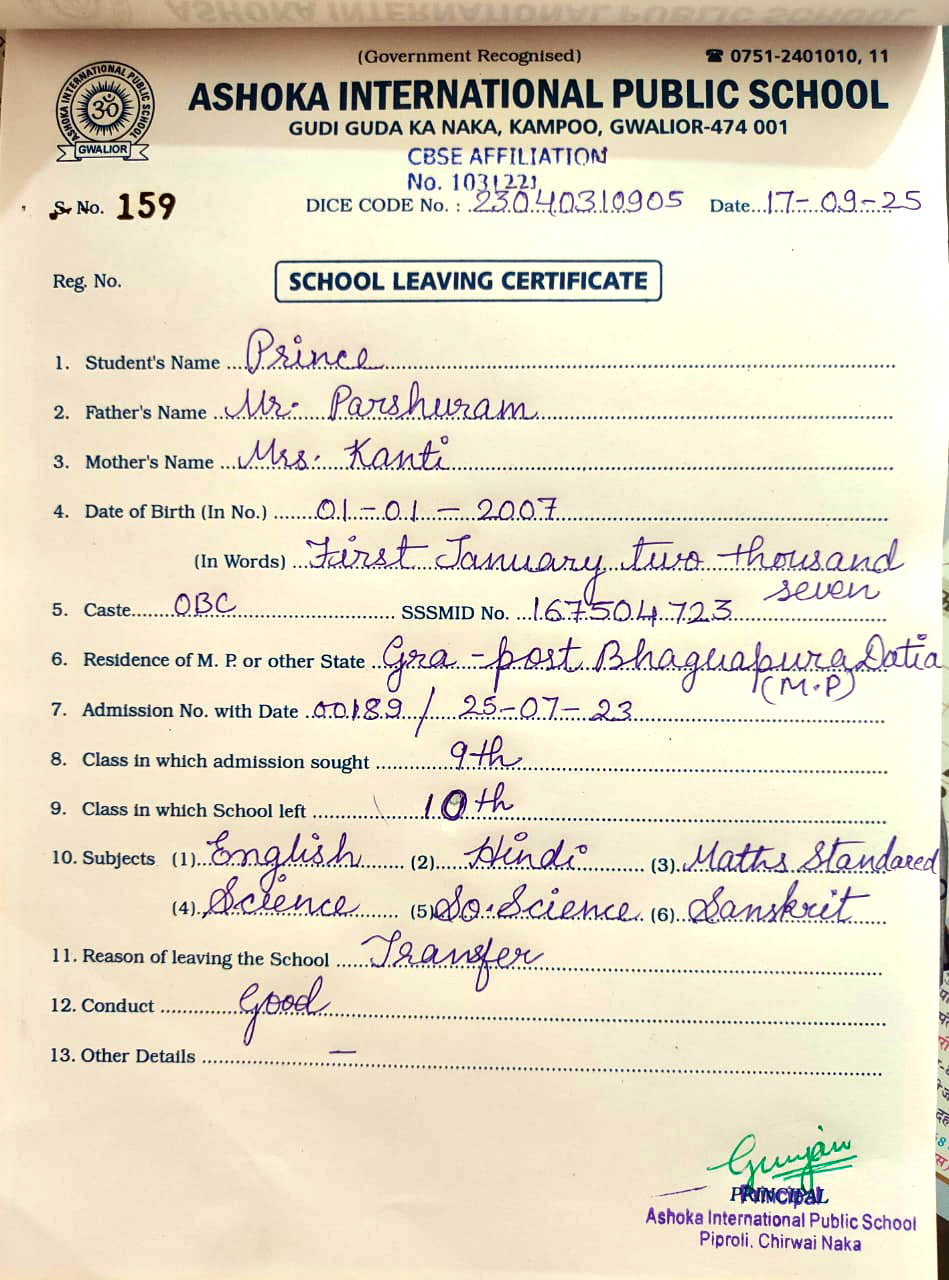 (Government Recognised)
☎ 0751-2401010, 11
ASHOKA INTERNATIONAL PUBLIC SCHOOL
GWALIOR
ASHOKA INTERNATIONAL PUBLIC SCHOOL
GUDI GUDA KA NAKA, KAMPOO, GWALIOR-474 001
CBSE AFFILIATION
No. 1031221
S. No. 159 DICE CODE No. : 23040310905 Date 17-09-25
Reg. No. SCHOOL LEAVING CERTIFICATE
1. Student's Name Prince
2. Father's Name Mr. Parshuram
3. Mother's Name Mrs. Kanti
4. Date of Birth (In No.) 01-01-2007
(In Words) First January two thousand
seven
5. Caste OBC SSSMID No. 167504723
6. Residence of M. P. or other State Gra-post Bhaguapura Datia
(M.P)
7. Admission No. with Date 00189 / 25-07-23
8. Class in which admission sought 9th
9. Class in which School left 10th
10. Subjects (1) English (2) Hindi (3) Maths Standared
(4) Science (5) So.Science (6) Sanskrit
11. Reason of leaving the School Transfer
12. Conduct Good
13. Other Details —
Gunjan
PRINCIPAL
Principal
Ashoka International Public School
Piproli, Chirwai Naka